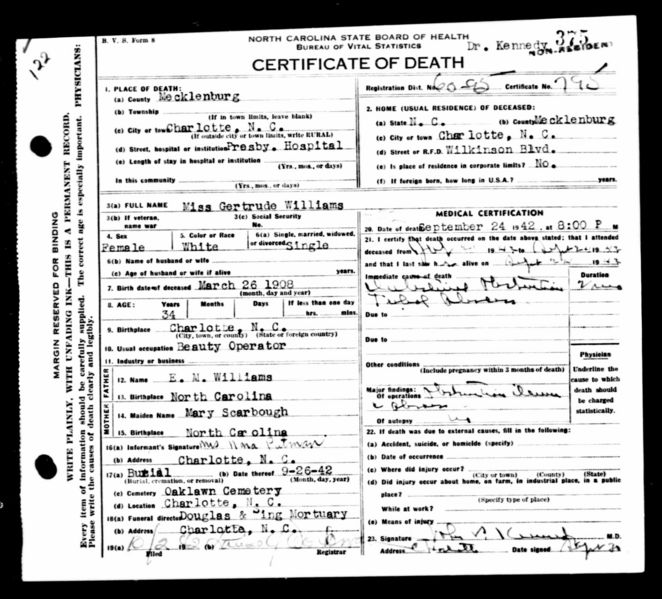 122
MARGIN RESERVED FOR BINDING
WRITE PLAINLY, WITH UNFADING INK—THIS IS A PERMANENT RECORD.
Every item of information should be carefully supplied. The correct age is especially important. PHYSICIANS:
Please write the causes of death clearly and legibly.
B. V. S. Form 8
NORTH CAROLINA STATE BOARD OF HEALTH
BUREAU OF VITAL STATISTICS
Dr. Kennedy 375
NON-RESIDENT
CERTIFICATE OF DEATH
Registration Dist. No. 60-95 Certificate No. 795
1. PLACE OF DEATH:
(a) County Mecklenburg
(b) Township
(If in town limits, leave blank)
(c) City or town Charlotte, N. C.
(If outside city or town limits, write RURAL)
(d) Street, hospital or institution Presby. Hospital
(e) Length of stay in hospital or institution
(Yrs., mos., or days)
In this community
(Yrs., mos., or days)
2. HOME (USUAL RESIDENCE) OF DECEASED:
(a) State N. C. (b) County Mecklenburg
(c) City or town Charlotte, N. C.
(d) Street or R.F.D. Wilkinson Blvd.
(e) Is place of residence in corporate limits? No.
(f) If foreign born, how long in U.S.A.? years
3(a) FULL NAME Miss Gertrude Williams
3(b) If veteran, name war
3(c) Social Security No.
4. Sex Female
5. Color or Race White
6(a) Single, married, widowed, or divorced Single
6(b) Name of husband or wife
6(c) Age of husband or wife if alive years.
7. Birth date of deceased March 26 1908
(month, day and year)
8. AGE: Years Months Days If less than one day
34 hrs. min.
9. Birthplace Charlotte, N. C.
(City, town, or county) (State or foreign country)
10. Usual occupation Beauty Operator
11. Industry or business
FATHER
12. Name E. M. Williams
13. Birthplace North Carolina
MOTHER
14. Maiden Name Mary Scarbough
15. Birthplace North Carolina
16(a) Informant's Signature Mrs
(b) Address Charlotte, N. C.
17(a) Burial (b) Date thereof 9-26-42
(Burial, cremation, or removal) (Month, day, year)
(c) Cemetery Oaklawn Cemetery
(d) Location Charlotte, N. C.
18(a) Funeral director Douglas & ing Mortuary
(b) Address Charlotte, N. C.
19(a) 10/2 (b)
Filed Registrar
MEDICAL CERTIFICATION
20. Date of death September 24 1942, at 8:00 P M
21. I certify that death occurred on the date above stated; that I attended
deceased from
and that I last saw alive on
Immediate cause of death Duration
Due to
Due to
Other conditions
(Include pregnancy within 3 months of death)
Major findings:
Of operations
Of autopsy
Physician
Underline the cause to which death should be charged statistically.
22. If death was due to external causes, fill in the following:
(a) Accident, suicide, or homicide (specify)
(b) Date of occurrence
(c) Where did injury occur?
(City or town) (County) (State)
(d) Did injury occur about home, on farm, in industrial place, in a public
place?
(Specify type of place)
While at work?
(e) Means of injury
23. Signature M.D.
Address Date signed